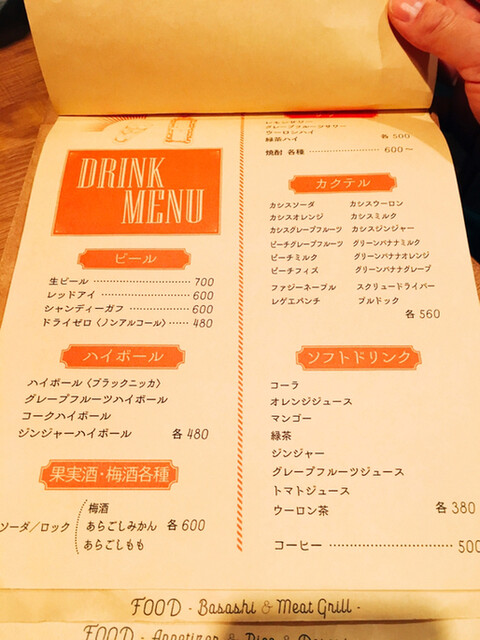 DRINK
MENU
ビール
生ビール 700
レッドアイ 600
シャンディーガフ 600
ドライゼロ〈ノンアルコール〉 480
ハイボール
ハイボール〈ブラックニッカ〉
グレープフルーツハイボール
コークハイボール
ジンジャーハイボール 各480
果実酒・梅酒各種
梅酒
ソーダ／ロック あらごしみかん 各600
あらごしもも
レモンサワー
グレープフルーツサワー
ウーロンハイ
緑茶ハイ 各500
焼酎 各種 600〜
カクテル
カシスソーダ カシスウーロン
カシスオレンジ カシスミルク
カシスグレープフルーツ カシスジンジャー
ピーチグレープフルーツ グリーンバナナミルク
ピーチミルク グリーンバナナオレンジ
ピーチフィズ グリーンバナナグレープ
ファジーネーブル スクリュードライバー
レゲエパンチ ブルドック
各560
ソフトドリンク
コーラ
オレンジジュース
マンゴー
緑茶
ジンジャー
グレープフルーツジュース
トマトジュース
ウーロン茶 各380
コーヒー 500
FOOD - Basashi & Meat Grill -
FOOD - Appetizer & Rice &